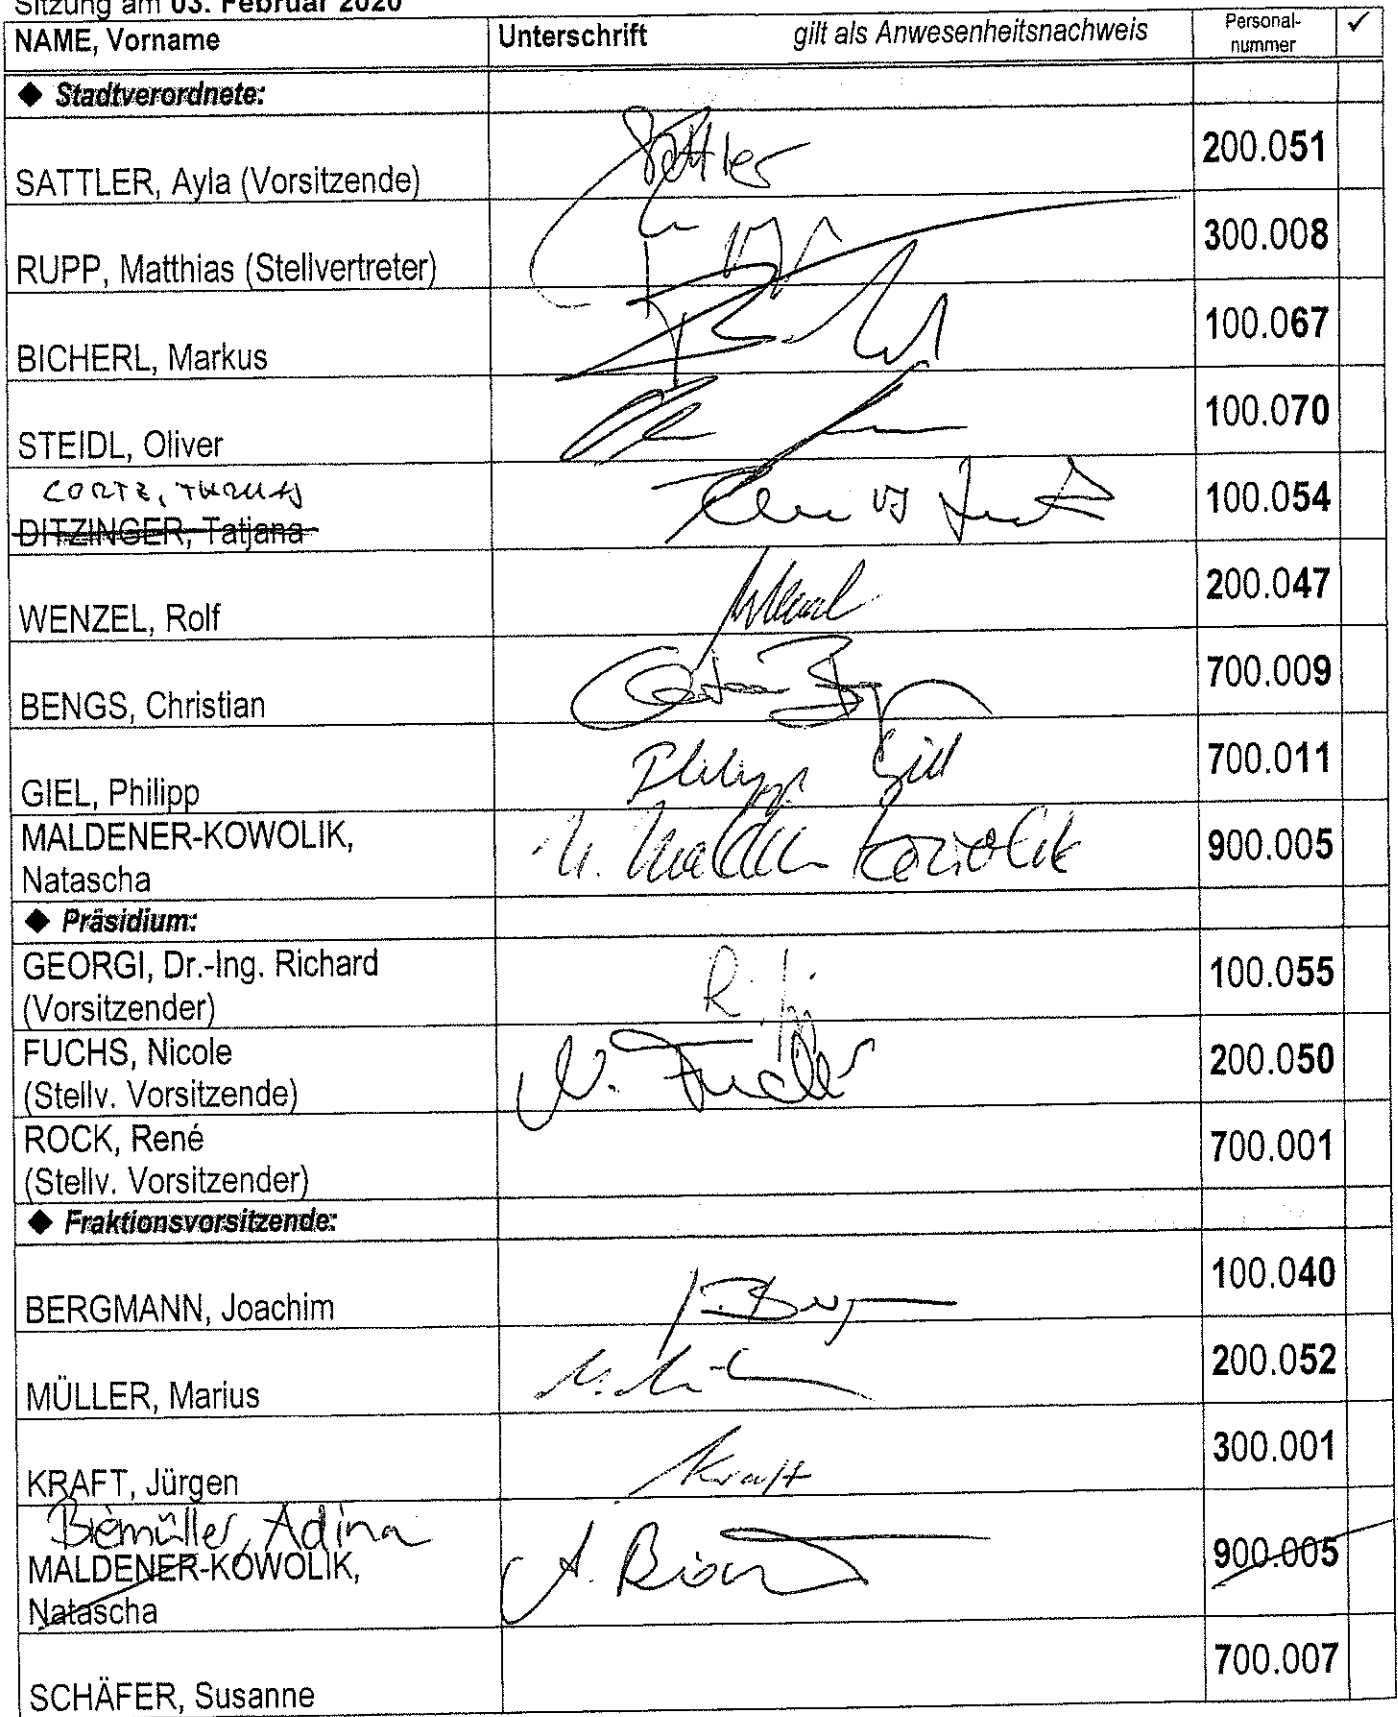 Sitzung am 03. Februar 2020
NAME, Vorname Unterschrift gilt als Anwesenheitsnachweis Personal-
nummer ✓
◆ Stadtverordnete:
SATTLER, Ayla (Vorsitzende) Sattler 200.051
RUPP, Matthias (Stellvertreter) 300.008
BICHERL, Markus 100.067
STEIDL, Oliver 100.070
DITZINGER, Tatjana 100.054
WENZEL, Rolf 200.047
BENGS, Christian 700.009
GIEL, Philipp Philipp Giel 700.011
MALDENER-KOWOLIK,
Natascha N. Maldener Kowolik 900.005
◆ Präsidium:
GEORGI, Dr.-Ing. Richard
(Vorsitzender) 100.055
FUCHS, Nicole
(Stellv. Vorsitzende) N. Fuchs 200.050
ROCK, René
(Stellv. Vorsitzender) 700.001
◆ Fraktionsvorsitzende:
BERGMANN, Joachim 100.040
MÜLLER, Marius 200.052
KRAFT, Jürgen Kraft 300.001
Biemüller, Adina
MALDENER-KOWOLIK,
Natascha 900.005
SCHÄFER, Susanne 700.007